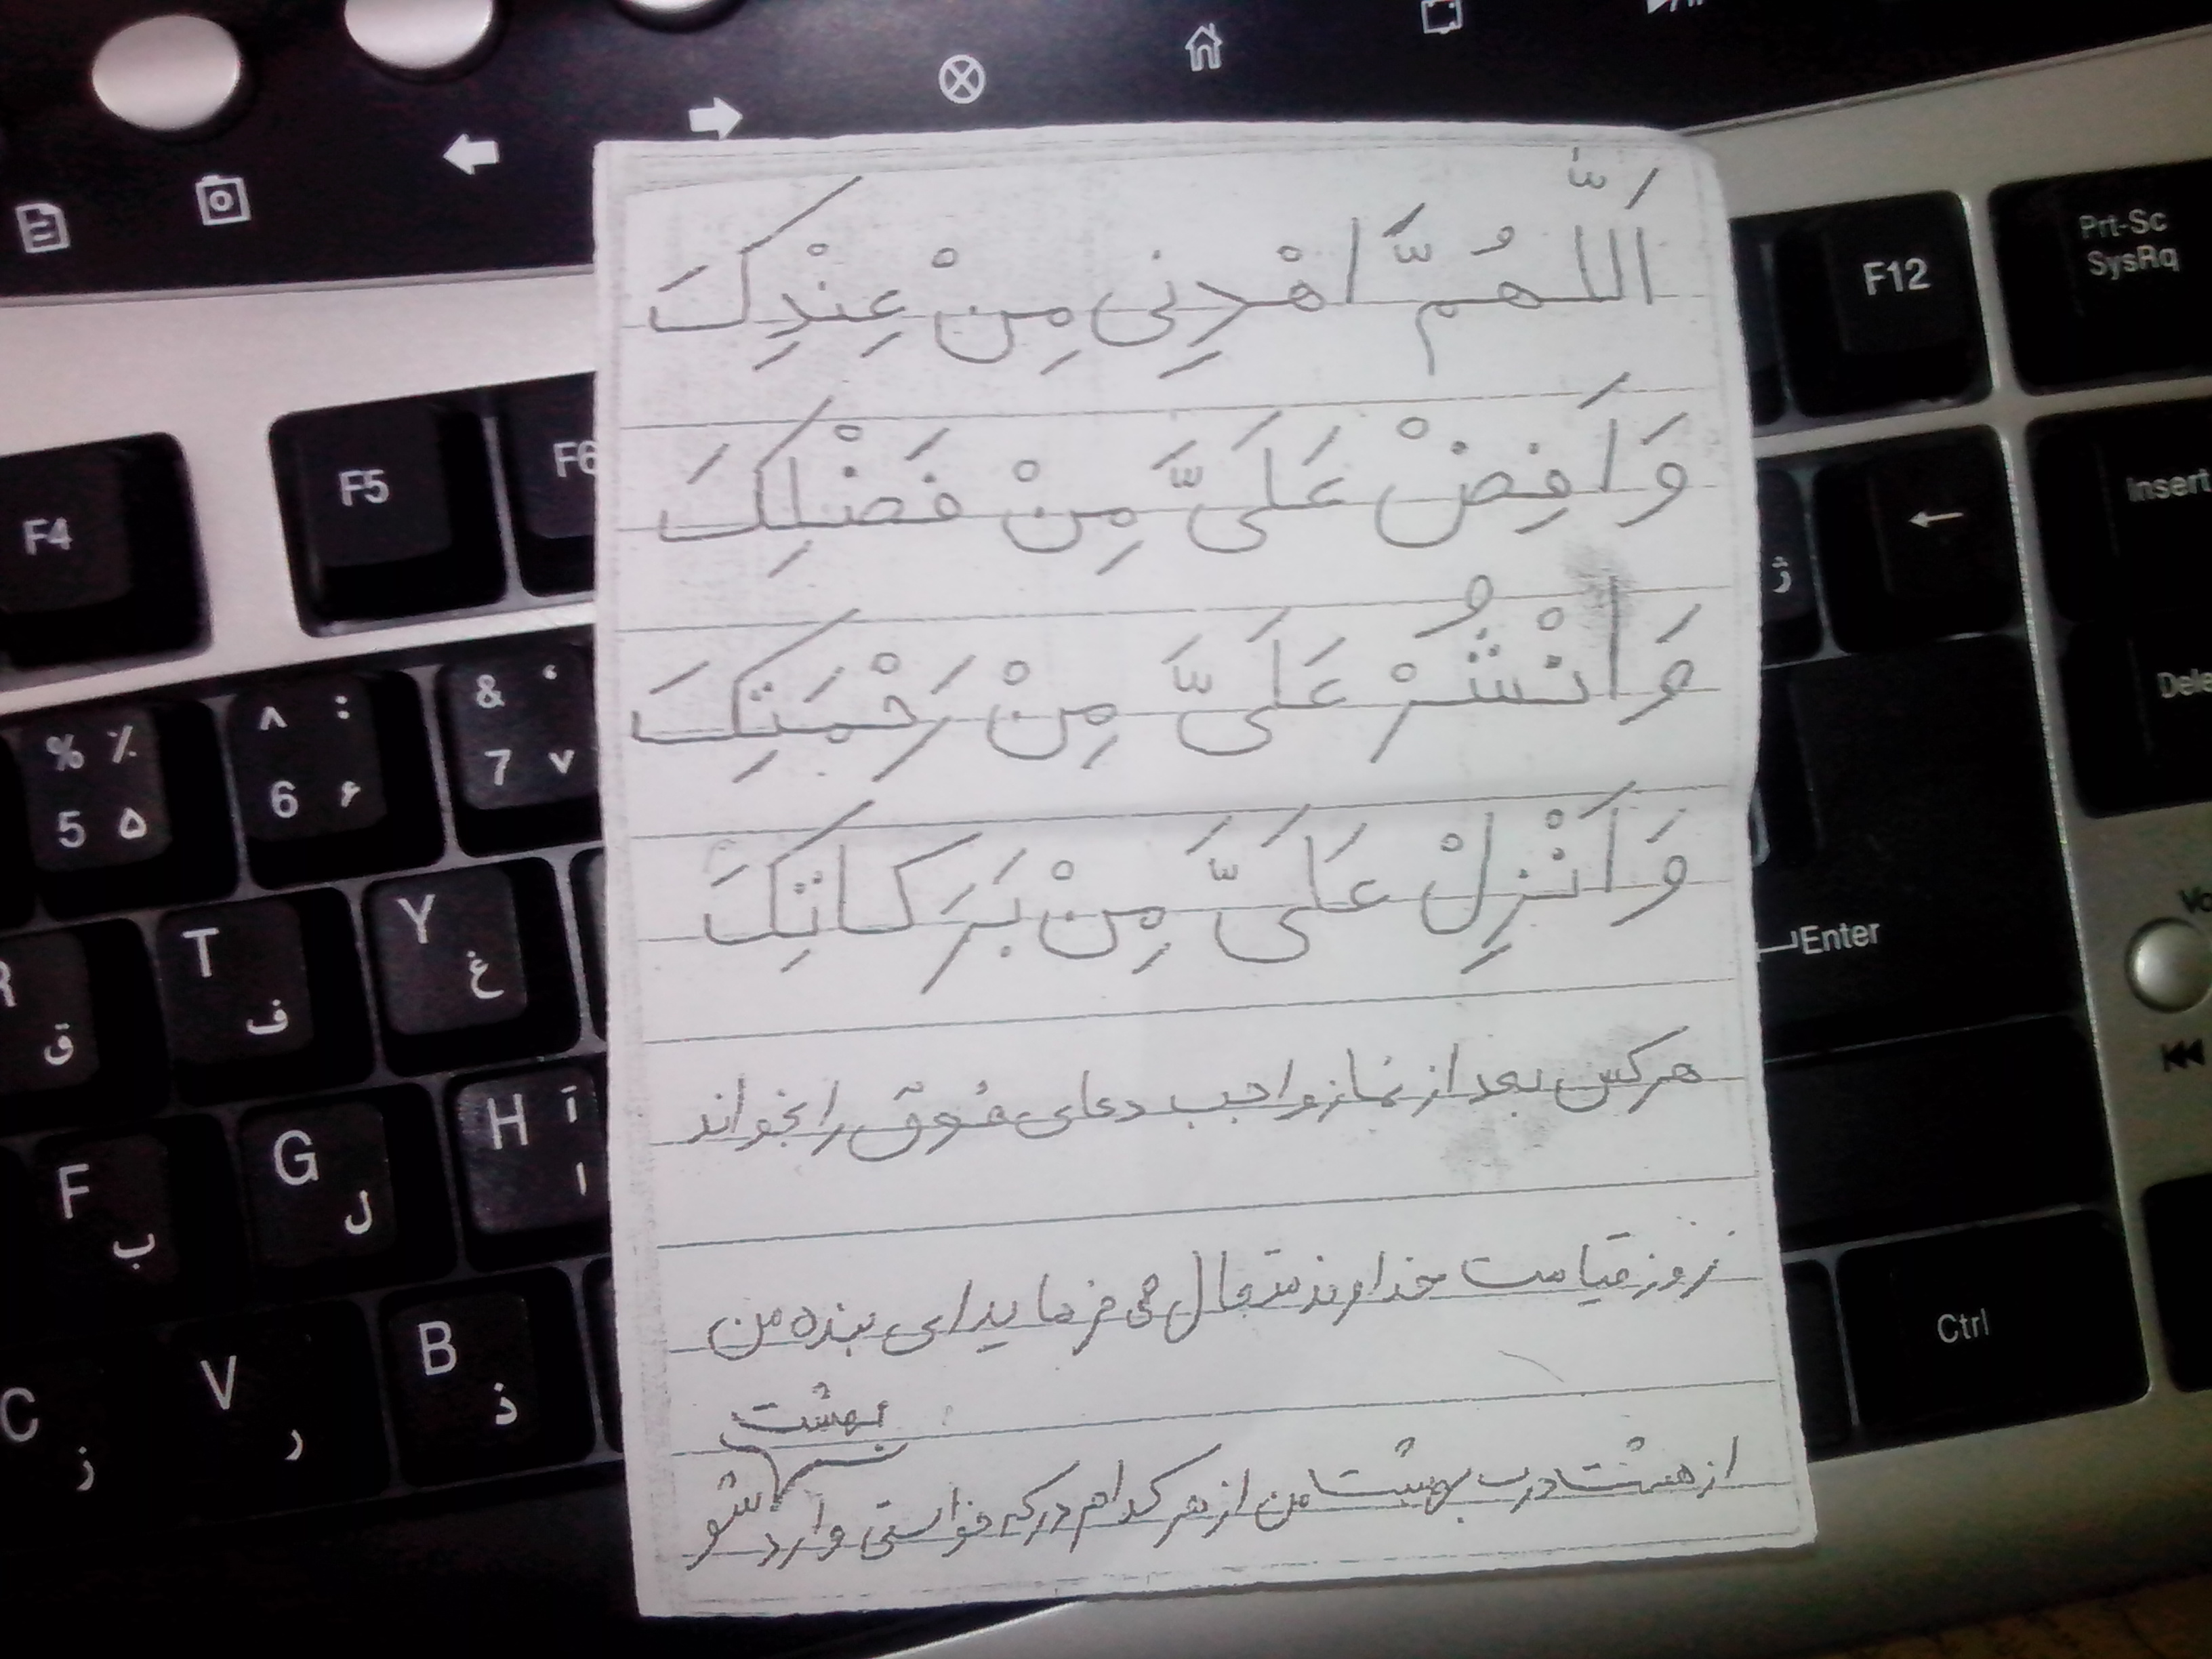 اَللّهُمَّ اهْدِنی مِنْ عِنْدِكَ
وَ اَفِضْ عَلَیَّ مِنْ فَضْلِكَ
وَ انْشُرْ عَلَیَّ مِنْ رَحْمَتِكَ
وَ اَنْزِلْ عَلَیَّ مِنْ بَرَكاتِكَ
هر کس بعد از نماز واجب دعای فوق را بخواند
روز قیامت خداوند متعال می فرماید ای بنده من
بهشت
از هشت درب بهشت من از هر کدام در که خواستی وارد شو
F12
Prt-Sc
SysRq
F4
F5
F6
Insert
ژ
% ٪
5 ۵
^ :
6 ۶
& ،
7 ۷
Dele
R ق
T ف
Y غ
Enter
Vo
F ب
G ل
H آ
ا
C ز
V ر
B ذ
Ctrl